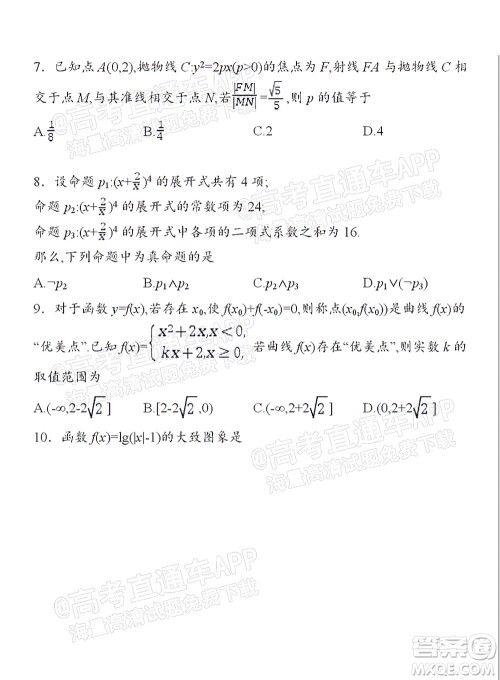 7. 已知点 A(0,2),抛物线 C:y²=2px(p>0)的焦点为 F,射线 FA 与抛物线 C 相
交于点 M,与其准线相交于点 N,若|FM|/|MN|=√5/5,则 p 的值等于
A.1/8 B.1/4 C.2 D.4
8. 设命题 p₁:(x+2/x)⁴ 的展开式共有 4 项;
命题 p₂:(x+2/x)⁴ 的展开式的常数项为 24;
命题 p₃:(x+2/x)⁴ 的展开式中各项的二项式系数之和为 16.
那么,下列命题中为真命题的是
A.¬p₂ B.p₁∧p₂ C.p₂∧p₃ D.p₁∨(¬p₃)
9. 对于函数 y=f(x),若存在 x₀,使 f(x₀)+f(-x₀)=0,则称点(x₀,f(x₀))是曲线 f(x)的
“优美点”.已知 f(x)={x²+2x,x<0, kx+2,x≥0, 若曲线 f(x)存在“优美点”,则实数 k 的
取值范围为
A.(-∞,2-2√2] B.[2-2√2,0) C.(-∞,2+2√2] D.(0,2+2√2]
10. 函数 f(x)=lg(|x|-1)的大致图象是
@高考直通车APP
海量高清试题免费下载
@高考直通车APP
海量高清试题免费下载
@高考直通车APP
海量高清试题免费下载
@高考直通车APP
海量高清试题免费下载
答案圈
MXQE.COM